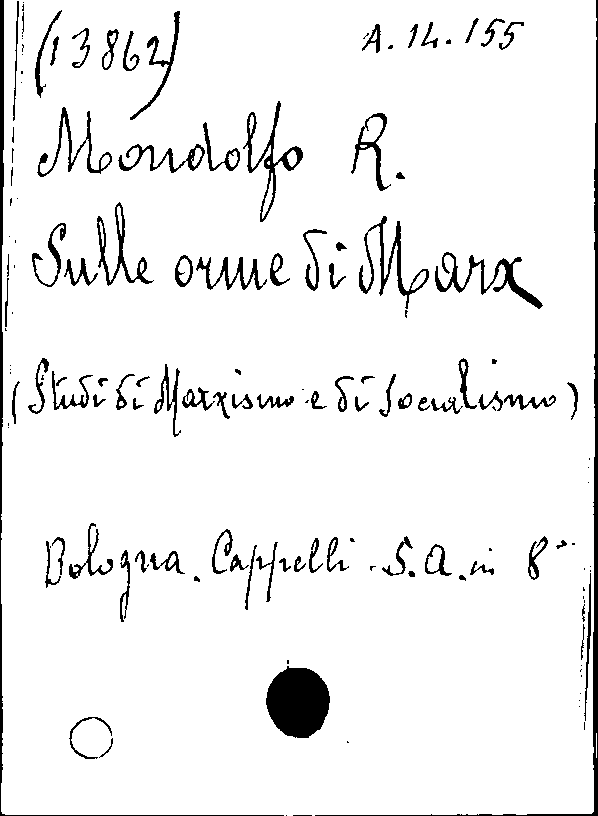 (13862) A.14.155
Mondolfo R.
Sulle orme di Marx
(Studi di Marxismo e di Socialismo)
Bologna. Cappelli. S.A. in 8°